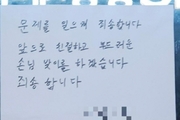 문제를 일으켜 죄송합니다
앞으로 친절하고 부드러운
손님 맞이를 하겠습니다
죄송합니다